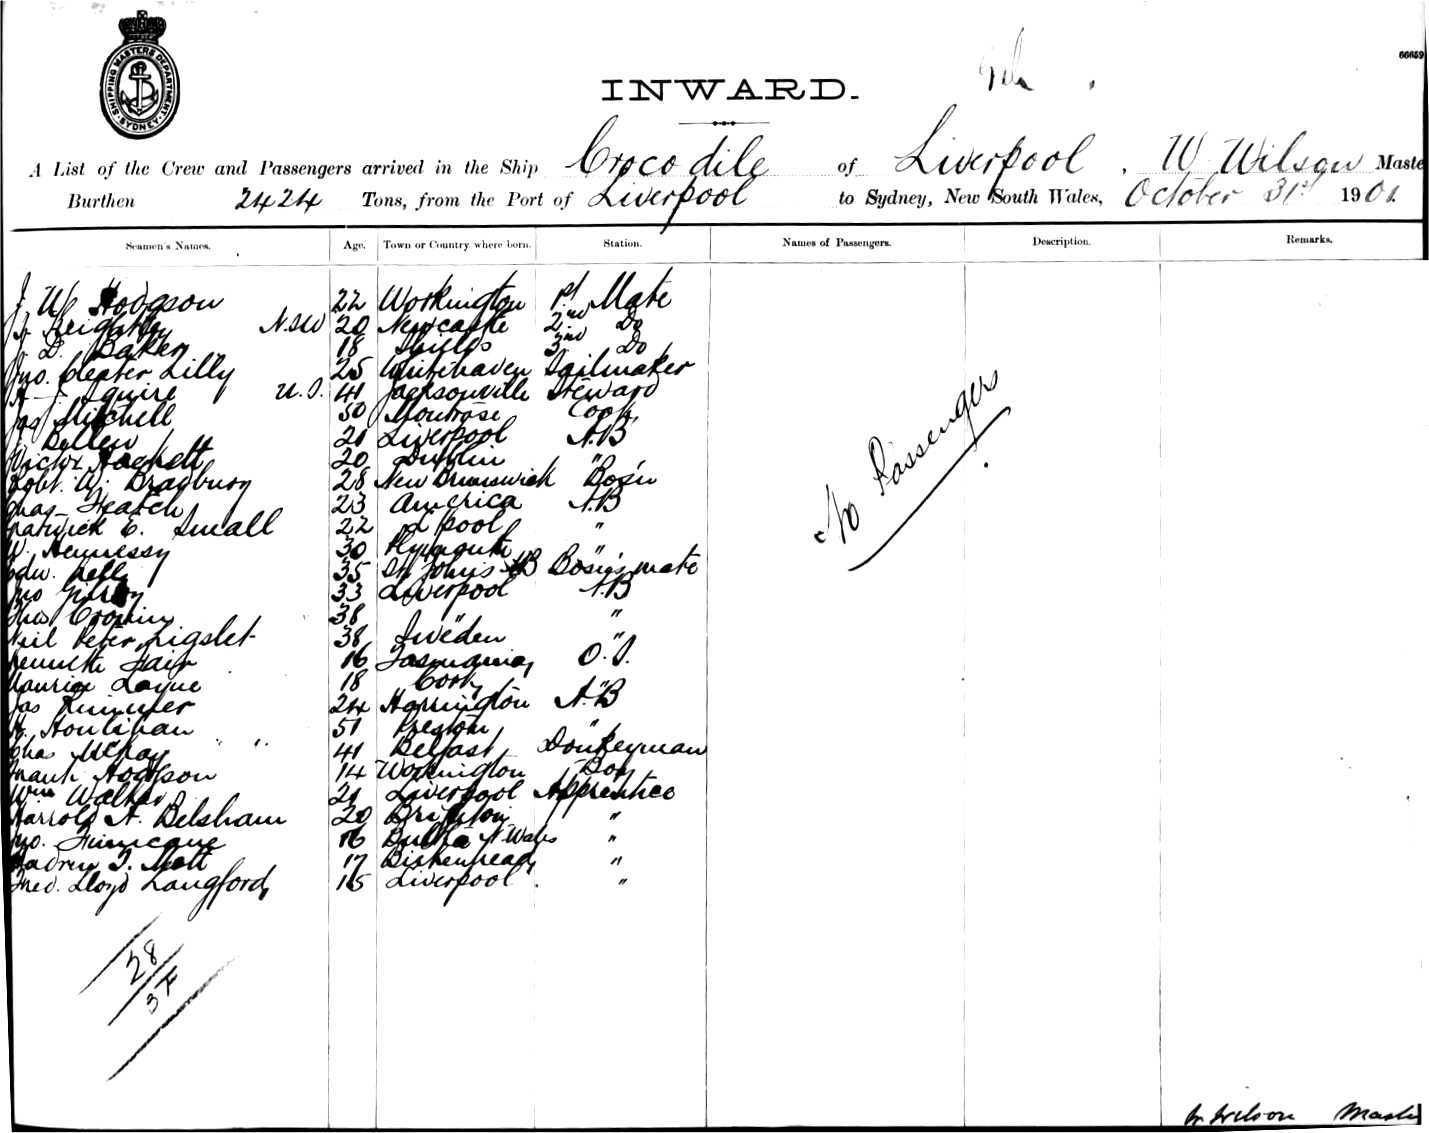 SHIPPING MASTERS DEPARTMENT SYDNEY
66659
INWARD.
A List of the Crew and Passengers arrived in the Ship Crocodile of Liverpool, W Wilson Maste
Burthen 2424 Tons, from the Port of Liverpool to Sydney, New South Wales, October 31st 1901.
Seamen's Names. Age. Town or Country where born. Station. Names of Passengers. Description. Remarks.
J. W. Hodgson 22 Workington 1st Mate
Keighley N.S.W 20 Newcastle 2nd Do
J. D. Baker 18 Shields 3rd Do
Jno. Lilly 25 Whitehaven Sailmaker
Squire U.S. 41 Jacksonville Steward
Jas Mitchell 50 Montrose Cook
J. Bullen 21 Liverpool A.B
Victor Hackett 20 Dublin "
Robt. W. Bradbury 28 New Brunswick Bos'n
Chas Heatch 23 America A.B
Patrick E. Small 22 L'pool "
W. Hennessy 30 Plymouth "
Edw. Kelly 35 St Johns NB Bos'ns mate
Jno 33 Liverpool A.B
Thos Cronin 38 " "
Neil Peter 38 Sweden "
Kenneth Fair 16 Tasmania O.S.
Maurice Layne 18 Cork "
Jas Rimmer 24 Harrington A.B
H. Houlihan 51 Preston "
Chas McKay 41 Belfast Donkeyman
Frank Hodgson 14 Workington Boy
Wm Walker 21 Liverpool Apprentice
Harrold A. Belsham 20 Brighton "
Jno. Finnicane 16 N. Wales "
T. Mott 17 Birkenhead "
Fred. Lloyd Langford 15 Liverpool "
No Passengers
28
W. Wilson Master